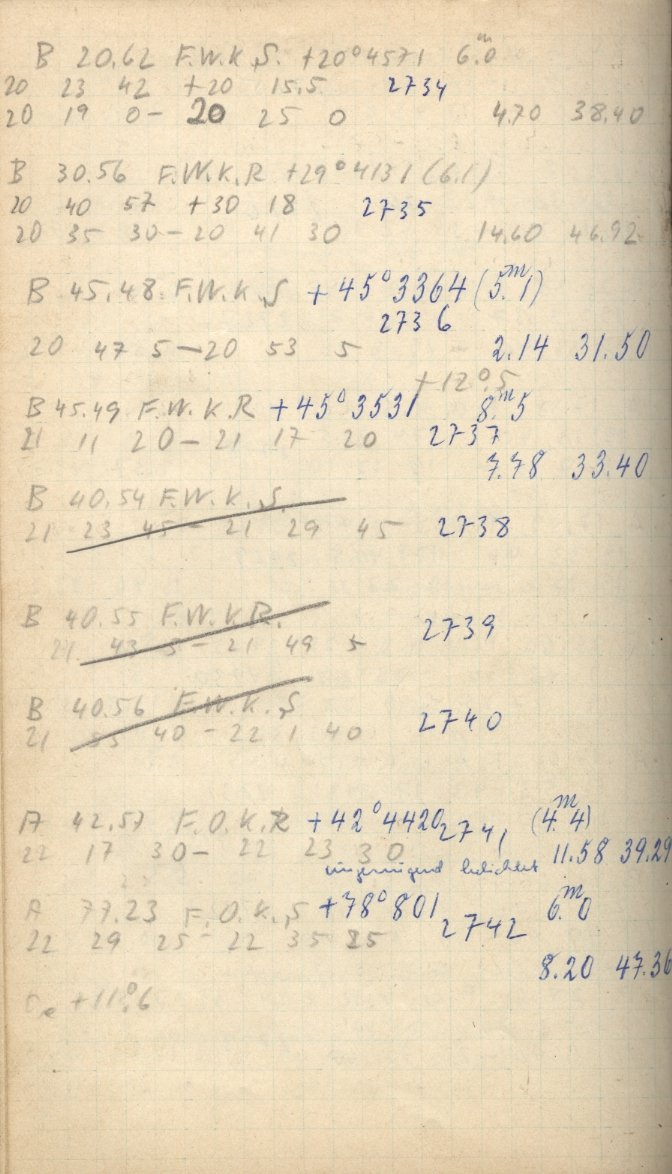 B 20.62 F.W.K.S. +20°4571 6.ᵐ0
20 23 42 +20 15.5 2734
20 19 0 - 20 25 0 4.70 38.40
B 30.56 F.W.K.R +29°4131 (6.1)
20 40 57 +30 18 2735
20 35 30 - 20 41 30 14.60 46.92
B 45.48 F.W.K.S +45°3364 (5.ᵐ1)
2736
20 47 5 - 20 53 5 2.14 31.50
+12°.5
B 45.49 F.W.K.R +45°3531 8.ᵐ5
21 11 20 - 21 17 20 2737
7.78 33.40
B 40.54 F.W.K.S.
21 23 45 - 21 29 45 2738
B 40.55 F.W.K.R.
21 43 5 - 21 49 5 2739
B 40.56 F.W.K.S
21 55 40 - 22 1 40 2740
A 42.57 F.O.K.R +42°4420 2741 (4.ᵐ4)
22 17 30 - 22 23 30 11.58 39.29
ungenügend belichtet
A 77.23 F.O.K.S +78°801 2742 6.ᵐ0
22 29 25 - 22 35 25
8.20 47.36
+11°.6